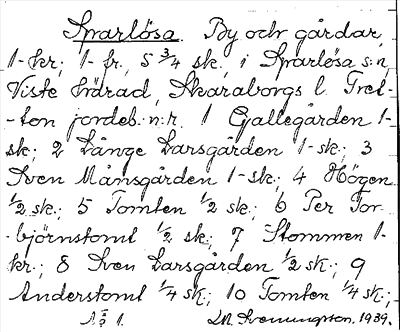 Sparlösa. By och gårdar,
1-kr; 1-fr, 5 3/4 sk, i Sparlösa s:n,
Viste härad, Skaraborgs l. Tret-
-ton jordeb:n:r. 1 Gallegården 1-
sk; 2 Långe Larsgården 1-sk; 3
Sven Månsgården 1-sk; 4 Högen
1/2 sk; 5 Tomten 1/2 sk; 6 Per Tor-
-björnstomt 1/2 sk; 7 Stommen 1-
kr; 8 Sven Larsgården 1/2 sk; 9
Anderstomt 1/4 sk; 10 Tomten 1/4 sk;
1939.